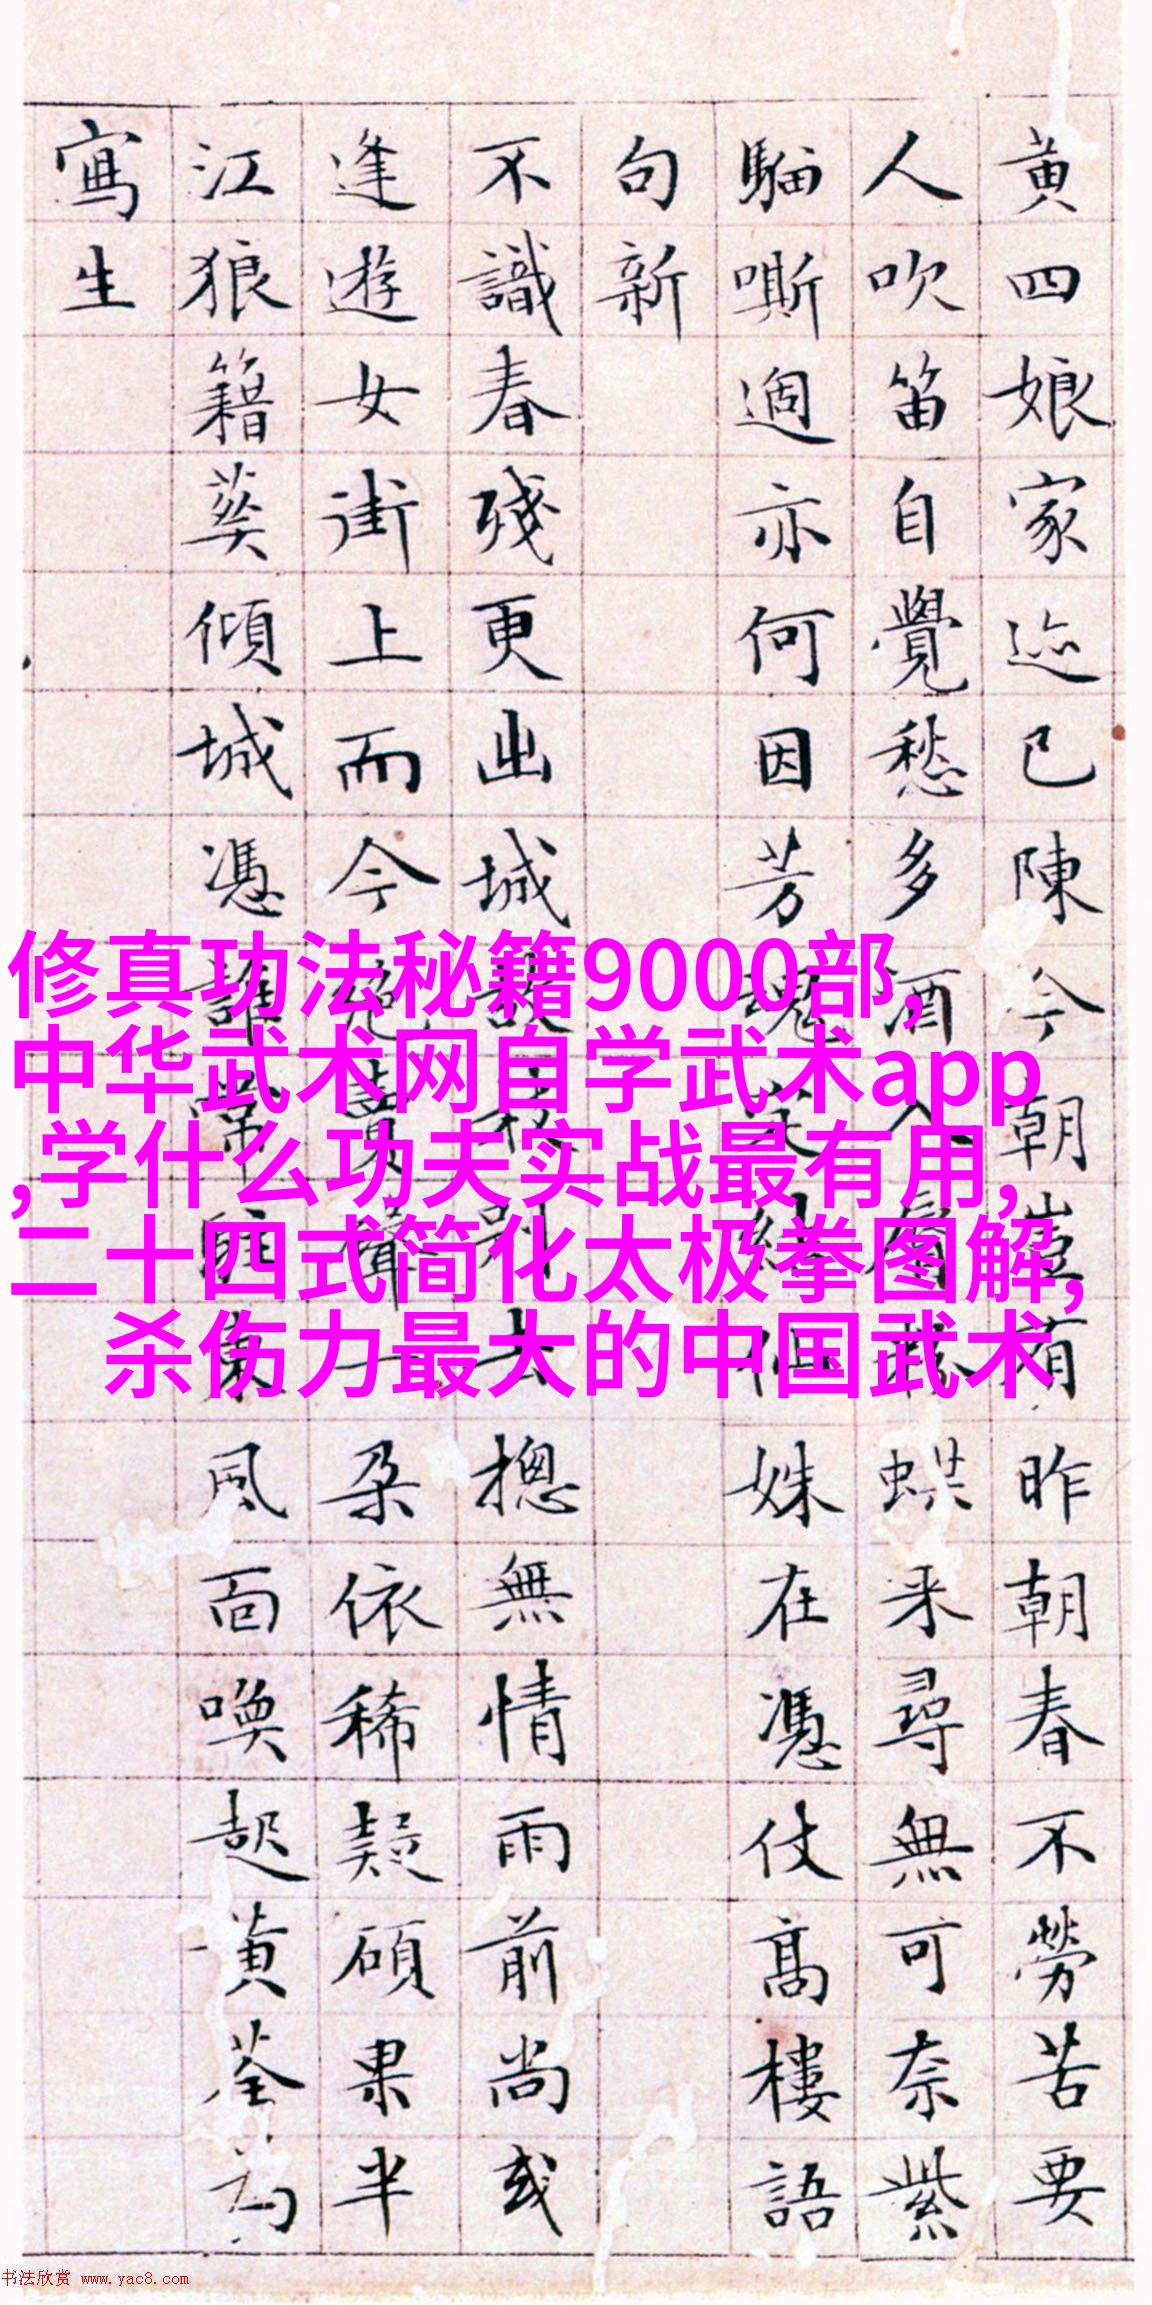 黄四娘家迹已陳今朝豈有昨朝春不勞苦要
人吹笛自覺愁多酒入来尋無可奈紫
騮嘶過亦何因芳魂姝在憑仗高樓語
句新
不識春殘更出城別去摠無情雨前尚或
逢遊女街上而今絶賣聲一朵依稀疑碩果半
江狼籍葵傾城憑誰常駐東風面喚起黄荃為
寫生
修真功法秘籍9000部,
中华武术网自学武术app
,学什么功夫实战最有用,
二十四式简化太极拳图解,
杀伤力最大的中国武术
书法欣赏 www.yac8.com